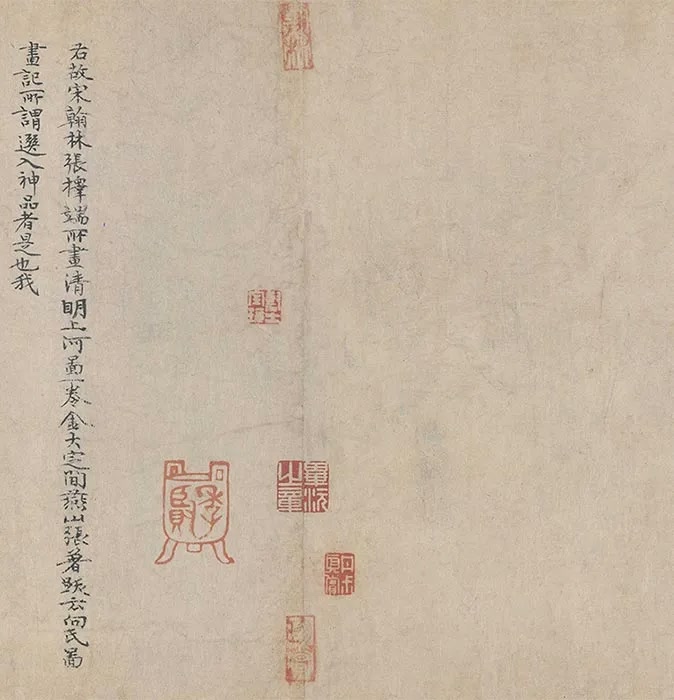 右故宋翰林張擇端所畫清明上河圖一卷金大定間燕山張著跋云向氏圖
畫記所謂選入神品者是也我